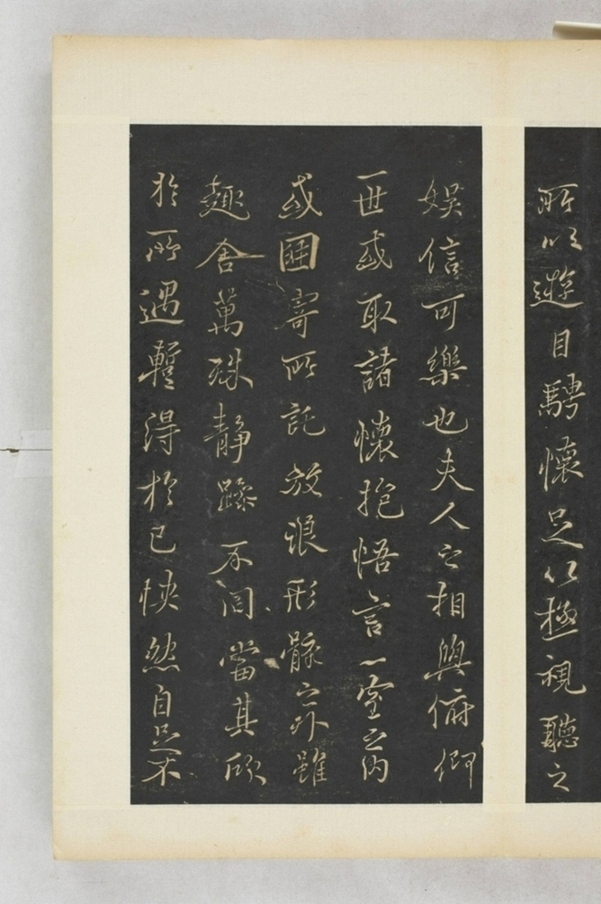 所以遊目騁懷足以極視聽之
娛信可樂也夫人之相與俯仰
一世或取諸懷抱悟言一室之內
或因寄所託放浪形骸之外雖
趣舍萬殊靜躁不同當其欣
於所遇蹔得於己怏然自足不